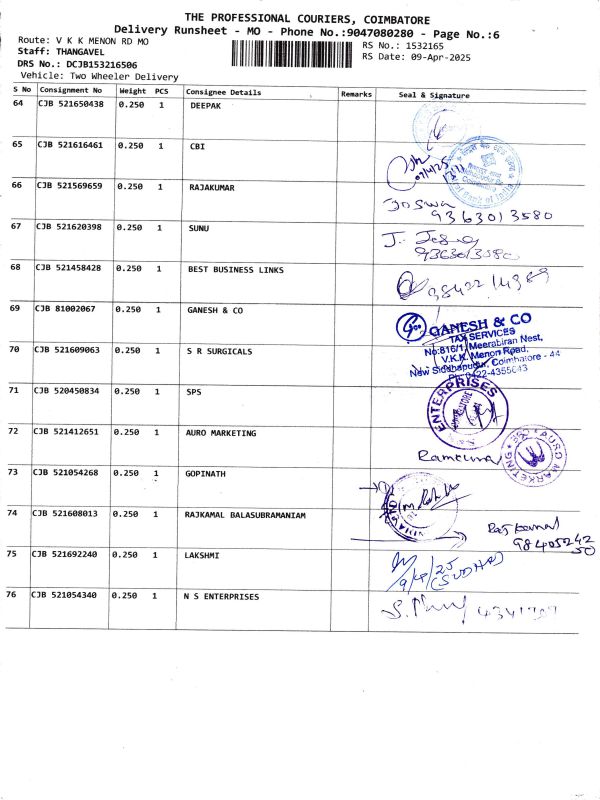 THE PROFESSIONAL COURIERS, COIMBATORE
Delivery Runsheet - MO - Phone No.:9047080280 - Page No.:6
Route: V K K MENON RD MO
RS No.: 1532165
Staff: THANGAVEL
RS Date: 09-Apr-2025
DRS No.: DCJB153216506
Vehicle: Two Wheeler Delivery
S No Consignment No Weight PCS Consignee Details Remarks Seal & Signature
64 CJB 521650438 0.250 1 DEEPAK
65 CJB 521616461 0.250 1 CBI
66 CJB 521569659 0.250 1 RAJAKUMAR
Joswa
9363013580
67 CJB 521620398 0.250 1 SUNU
9363013580
68 CJB 521458428 0.250 1 BEST BUSINESS LINKS
69 CJB 81002067 0.250 1 GANESH & CO
GANESH & CO
TAX SERVICES
No:816/1, Meerabiran Nest,
V.K.K. Menon Road,
New Siddhapudur, Coimbatore - 44
Ph: 0422-4355643
70 CJB 521609063 0.250 1 S R SURGICALS
71 CJB 520450834 0.250 1 SPS
ENTERPRISES
72 CJB 521412651 0.250 1 AURO MARKETING
AURO MARKETING
73 CJB 521054268 0.250 1 GOPINATH
74 CJB 521608013 0.250 1 RAJKAMAL BALASUBRAMANIAM
Rajkamal
9840524250
75 CJB 521692240 0.250 1 LAKSHMI
9/4/25
76 CJB 521054340 0.250 1 N S ENTERPRISES